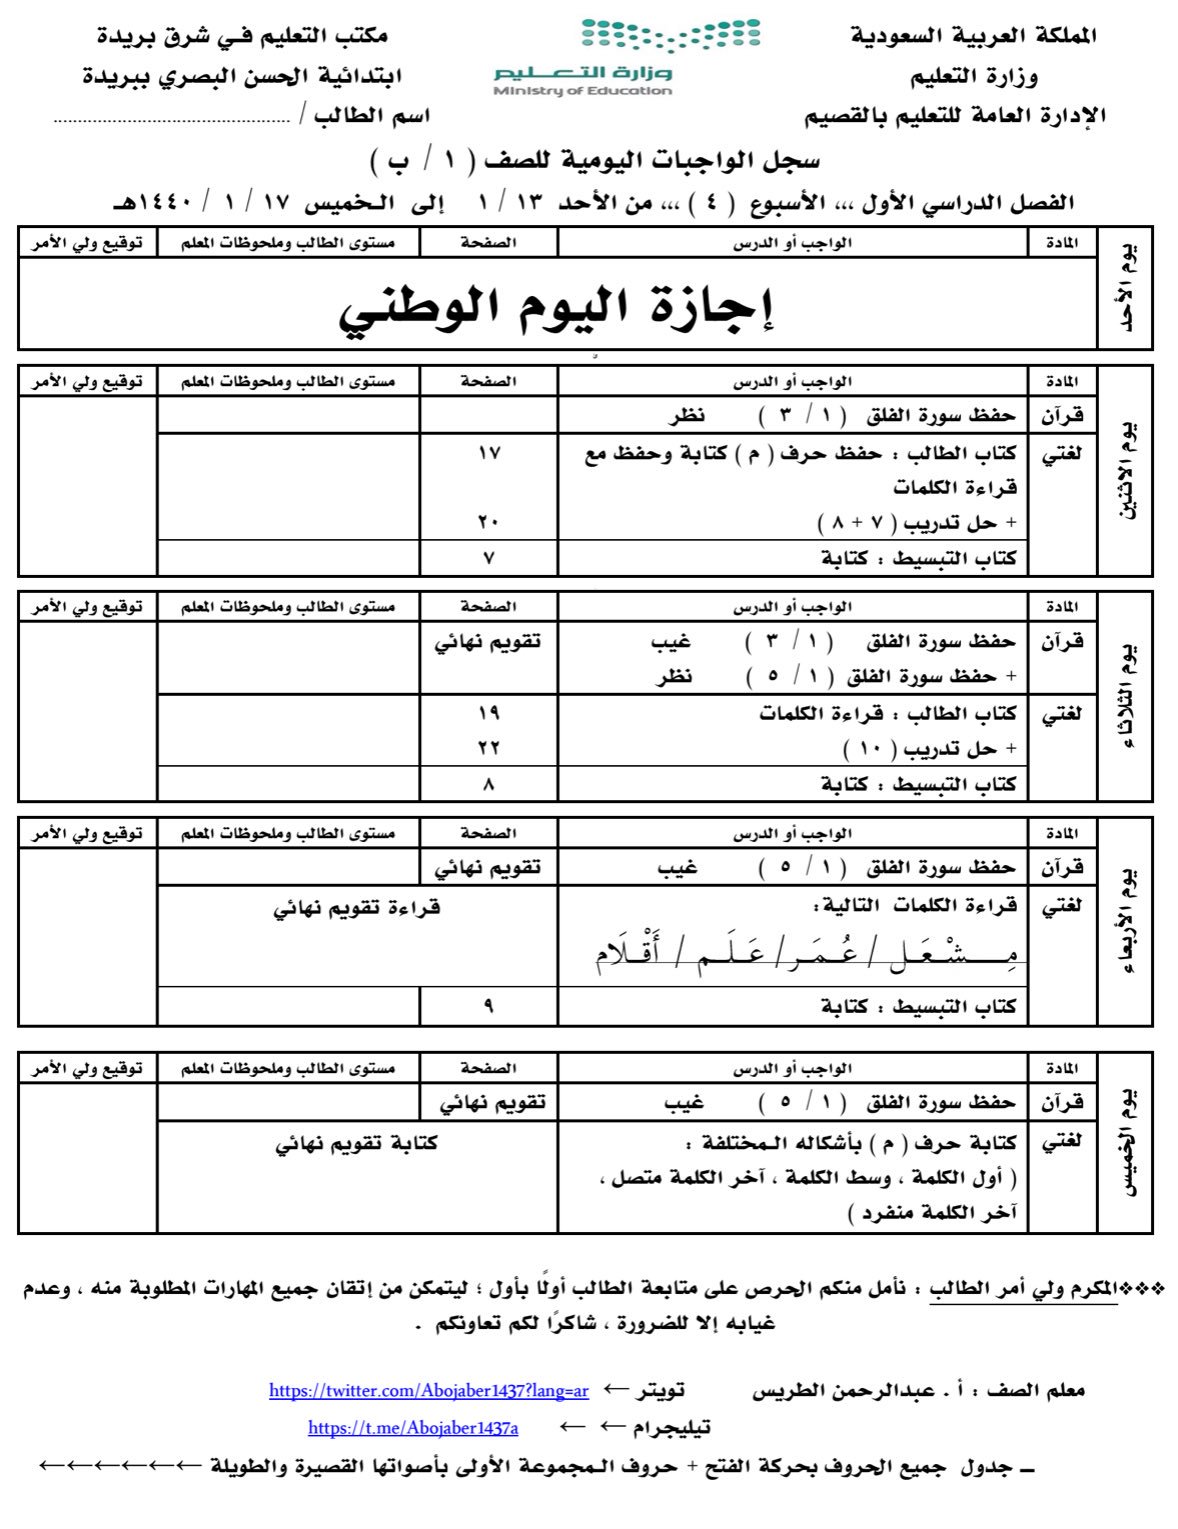 المملكة العربية السعودية
وزارة التعليم
الإدارة العامة للتعليم بالقصيم
وزارة التعليم
Ministry of Education
مكتب التعليم في شرق بريدة
ابتدائية الحسن البصري ببريدة
اسم الطالب / ................................................
سجل الواجبات اليومية للصف ( ١ / ب )
الفصل الدراسي الأول ،،، الأسبوع ( ٤ ) ،،، من الأحد ١٣ / ١ إلى الخميس ١٧ / ١ / ١٤٤٠هـ
يوم الأحد
المادة الواجب أو الدرس الصفحة مستوى الطالب وملحوظات المعلم توقيع ولي الأمر
إجازة اليوم الوطني
يوم الاثنين
المادة الواجب أو الدرس الصفحة مستوى الطالب وملحوظات المعلم توقيع ولي الأمر
قرآن حفظ سورة الفلق ( ١ / ٣ ) نظر
لغتي كتاب الطالب : حفظ حرف ( م ) كتابة وحفظ مع ١٧
قراءة الكلمات
+ حل تدريب ( ٧ + ٨ ) ٢٠
كتاب التبسيط : كتابة ٧
يوم الثلاثاء
المادة الواجب أو الدرس الصفحة مستوى الطالب وملحوظات المعلم توقيع ولي الأمر
قرآن حفظ سورة الفلق ( ١ / ٣ ) غيب تقويم نهائي
+ حفظ سورة الفلق ( ١ / ٥ ) نظر
لغتي كتاب الطالب : قراءة الكلمات ١٩
+ حل تدريب ( ١٠ ) ٢٢
كتاب التبسيط : كتابة ٨
يوم الأربعاء
المادة الواجب أو الدرس الصفحة مستوى الطالب وملحوظات المعلم توقيع ولي الأمر
قرآن حفظ سورة الفلق ( ١ / ٥ ) غيب تقويم نهائي
لغتي قراءة الكلمات التالية: قراءة تقويم نهائي
مِـــشْـعَـل / عُـمَـر/ عَـلَـم / أَقْـلَام
كتاب التبسيط : كتابة ٩
يوم الخميس
المادة الواجب أو الدرس الصفحة مستوى الطالب وملحوظات المعلم توقيع ولي الأمر
قرآن حفظ سورة الفلق ( ١ / ٥ ) غيب تقويم نهائي
لغتي كتابة حرف ( م ) بأشكاله المختلفة : كتابة تقويم نهائي
( أول الكلمة ، وسط الكلمة ، آخر الكلمة متصل ،
آخر الكلمة منفرد )
❖❖❖المكرم ولي أمر الطالب : نأمل منكم الحرص على متابعة الطالب أولًا بأول ؛ ليتمكن من إتقان جميع المهارات المطلوبة منه ، وعدم
غيابه إلا للضرورة ، شاكرًا لكم تعاونكم .
معلم الصف : أ . عبدالرحمن الطريس تويتر ← https://twitter.com/Abojaber1437?lang=ar
تيليجرام ← ← https://t.me/Abojaber1437a
ــ جدول جميع الحروف بحركة الفتح + حروف المجموعة الأولى بأصواتها القصيرة والطويلة ←←←←←←